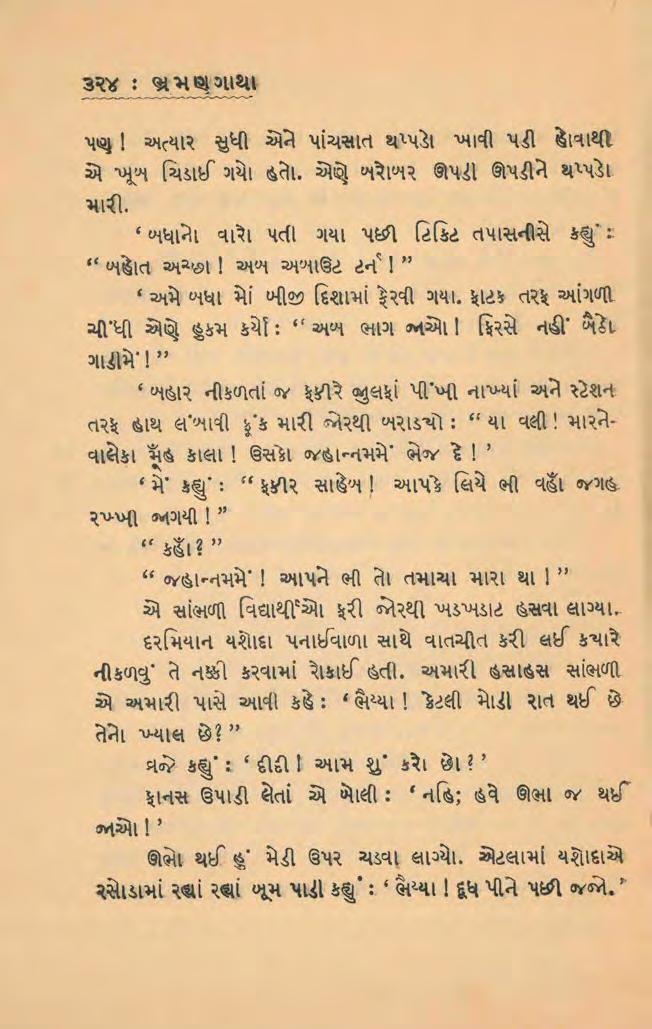 ૩૨૪ : ભ્રમણગાથા
પણ ! અત્યાર સુધી એને પાંચસાત થપ્પડો ખાવી પડી હોવાથી
એ ખૂબ ચિડાઈ ગયો હતો. એણે બરોબર ઊપડી ઊપડીને થપ્પડો
મારી.
‘ બધાનો વારો પતી ગયા પછી ટિકિટ તપાસનીસે કહ્યું :
“ બહોત અચ્છા ! અબ અબાઉટ ટર્ન ! ”
‘ અમે બધા મોં બીજી દિશામાં ફેરવી ગયા. ફાટક તરફ આંગળી
ચીંધી એણે હુકમ કર્યો : “ અબ ભાગ જાઓ ! ફિરસે નહીં બૈઠો
ગાડીમેં ! ”
‘ બહાર નીકળતાં જ ફકીરે જુલફાં પીંખી નાખ્યાં અને સ્ટેશન
તરફ હાથ લંબાવી ફૂંક મારી જોરથી બરાડ્યો : “ યા વલી ! મારને-
વાલેકા મૂઁહ કાલા ! ઉસકો જહાન્નમમેં ભેજ દે ! ’
‘ મેં કહ્યું : “ ફકીર સાહેબ ! આપકે લિયે ભી વહાઁ જગહ
રખ્ખી જાગયી ! ”
“ કહાઁ ? ”
“ જહાન્નમમેં ! આપને ભી તો તમાચા મારા થા ! ”
એ સાંભળી વિદ્યાર્થીઓ ફરી જોરથી ખડખડાટ હસવા લાગ્યા.
દરમિયાન યશોદા પનાઈવાળા સાથે વાતચીત કરી લઈ ક્યારે
નીકળવું તે નક્કી કરવામાં રોકાઈ હતી. અમારી હસાહસ સાંભળી
એ અમારી પાસે આવી કહે : ‘ ભૈય્યા ! કેટલી મોડી રાત થઈ છે
તેનો ખ્યાલ છે ? ”
વ્રજે કહ્યું : ‘ દીદી ! આમ શું કરો છો ? ’
ફાનસ ઉપાડી લેતાં એ બોલી : ‘ નહિ; હવે ઊભા જ થઈ
જાઓ ! ’
ઊભો થઈ હું મેડી ઉપર ચડવા લાગ્યો. એટલામાં યશોદાએ
રસોડામાં રહ્યાં રહ્યાં બૂમ પાડી કહ્યું : ‘ ભૈય્યા ! દૂધ પીને પછી જજો. ’